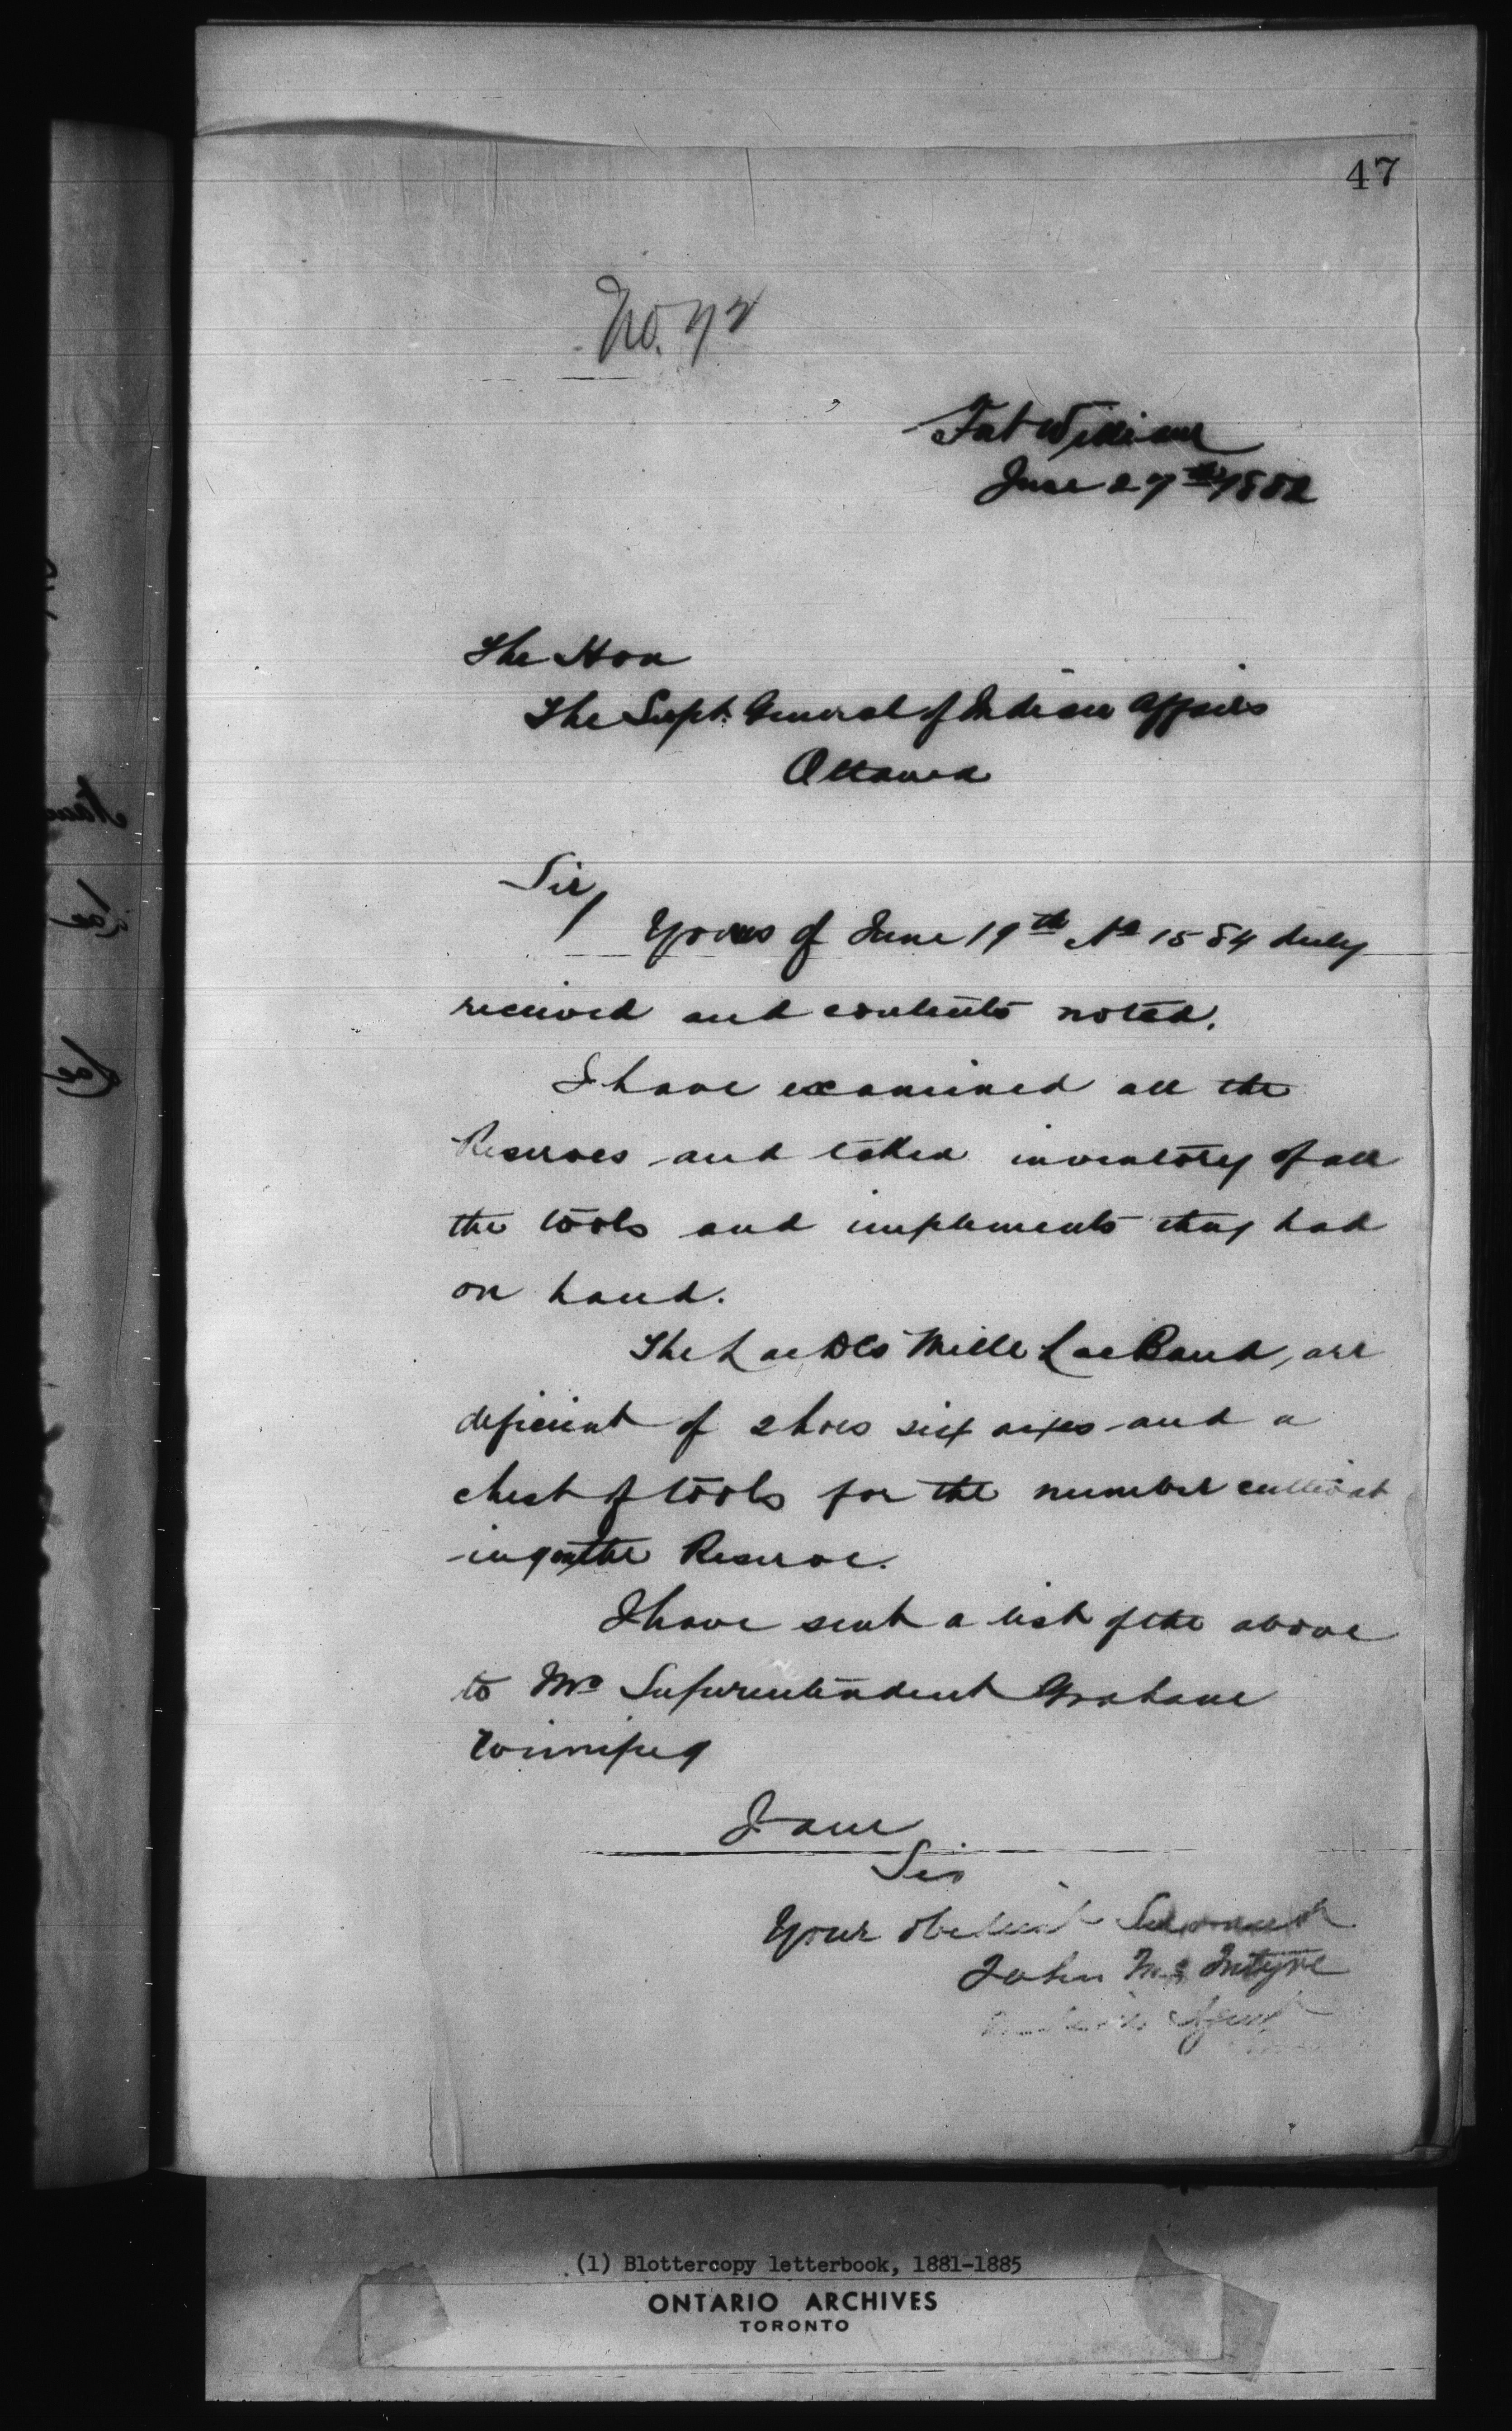 47
No. 72
Fort William
June 27th 1882
The Hon
The Supt. General of Indian Affairs
Ottawa
Sir,
Yours of June 19th No 1584 duly
received and contents noted.
I have examined all the
Reserves and taken inventory of all
the tools and implements they had
on hand.
The Lac Des Mille Lac Band, are
deficient of 2 hoes six axes and a
chest of tools for the number cultivat
-ing on the Reserve.
I have sent a list of the above
to Mr Superintendent Graham
Winnipeg
I am
Sir
Your obedient Servant
John Mc Intyre
Agent
(1) Blottercopy letterbook, 1881-1885
ONTARIO ARCHIVES
TORONTO